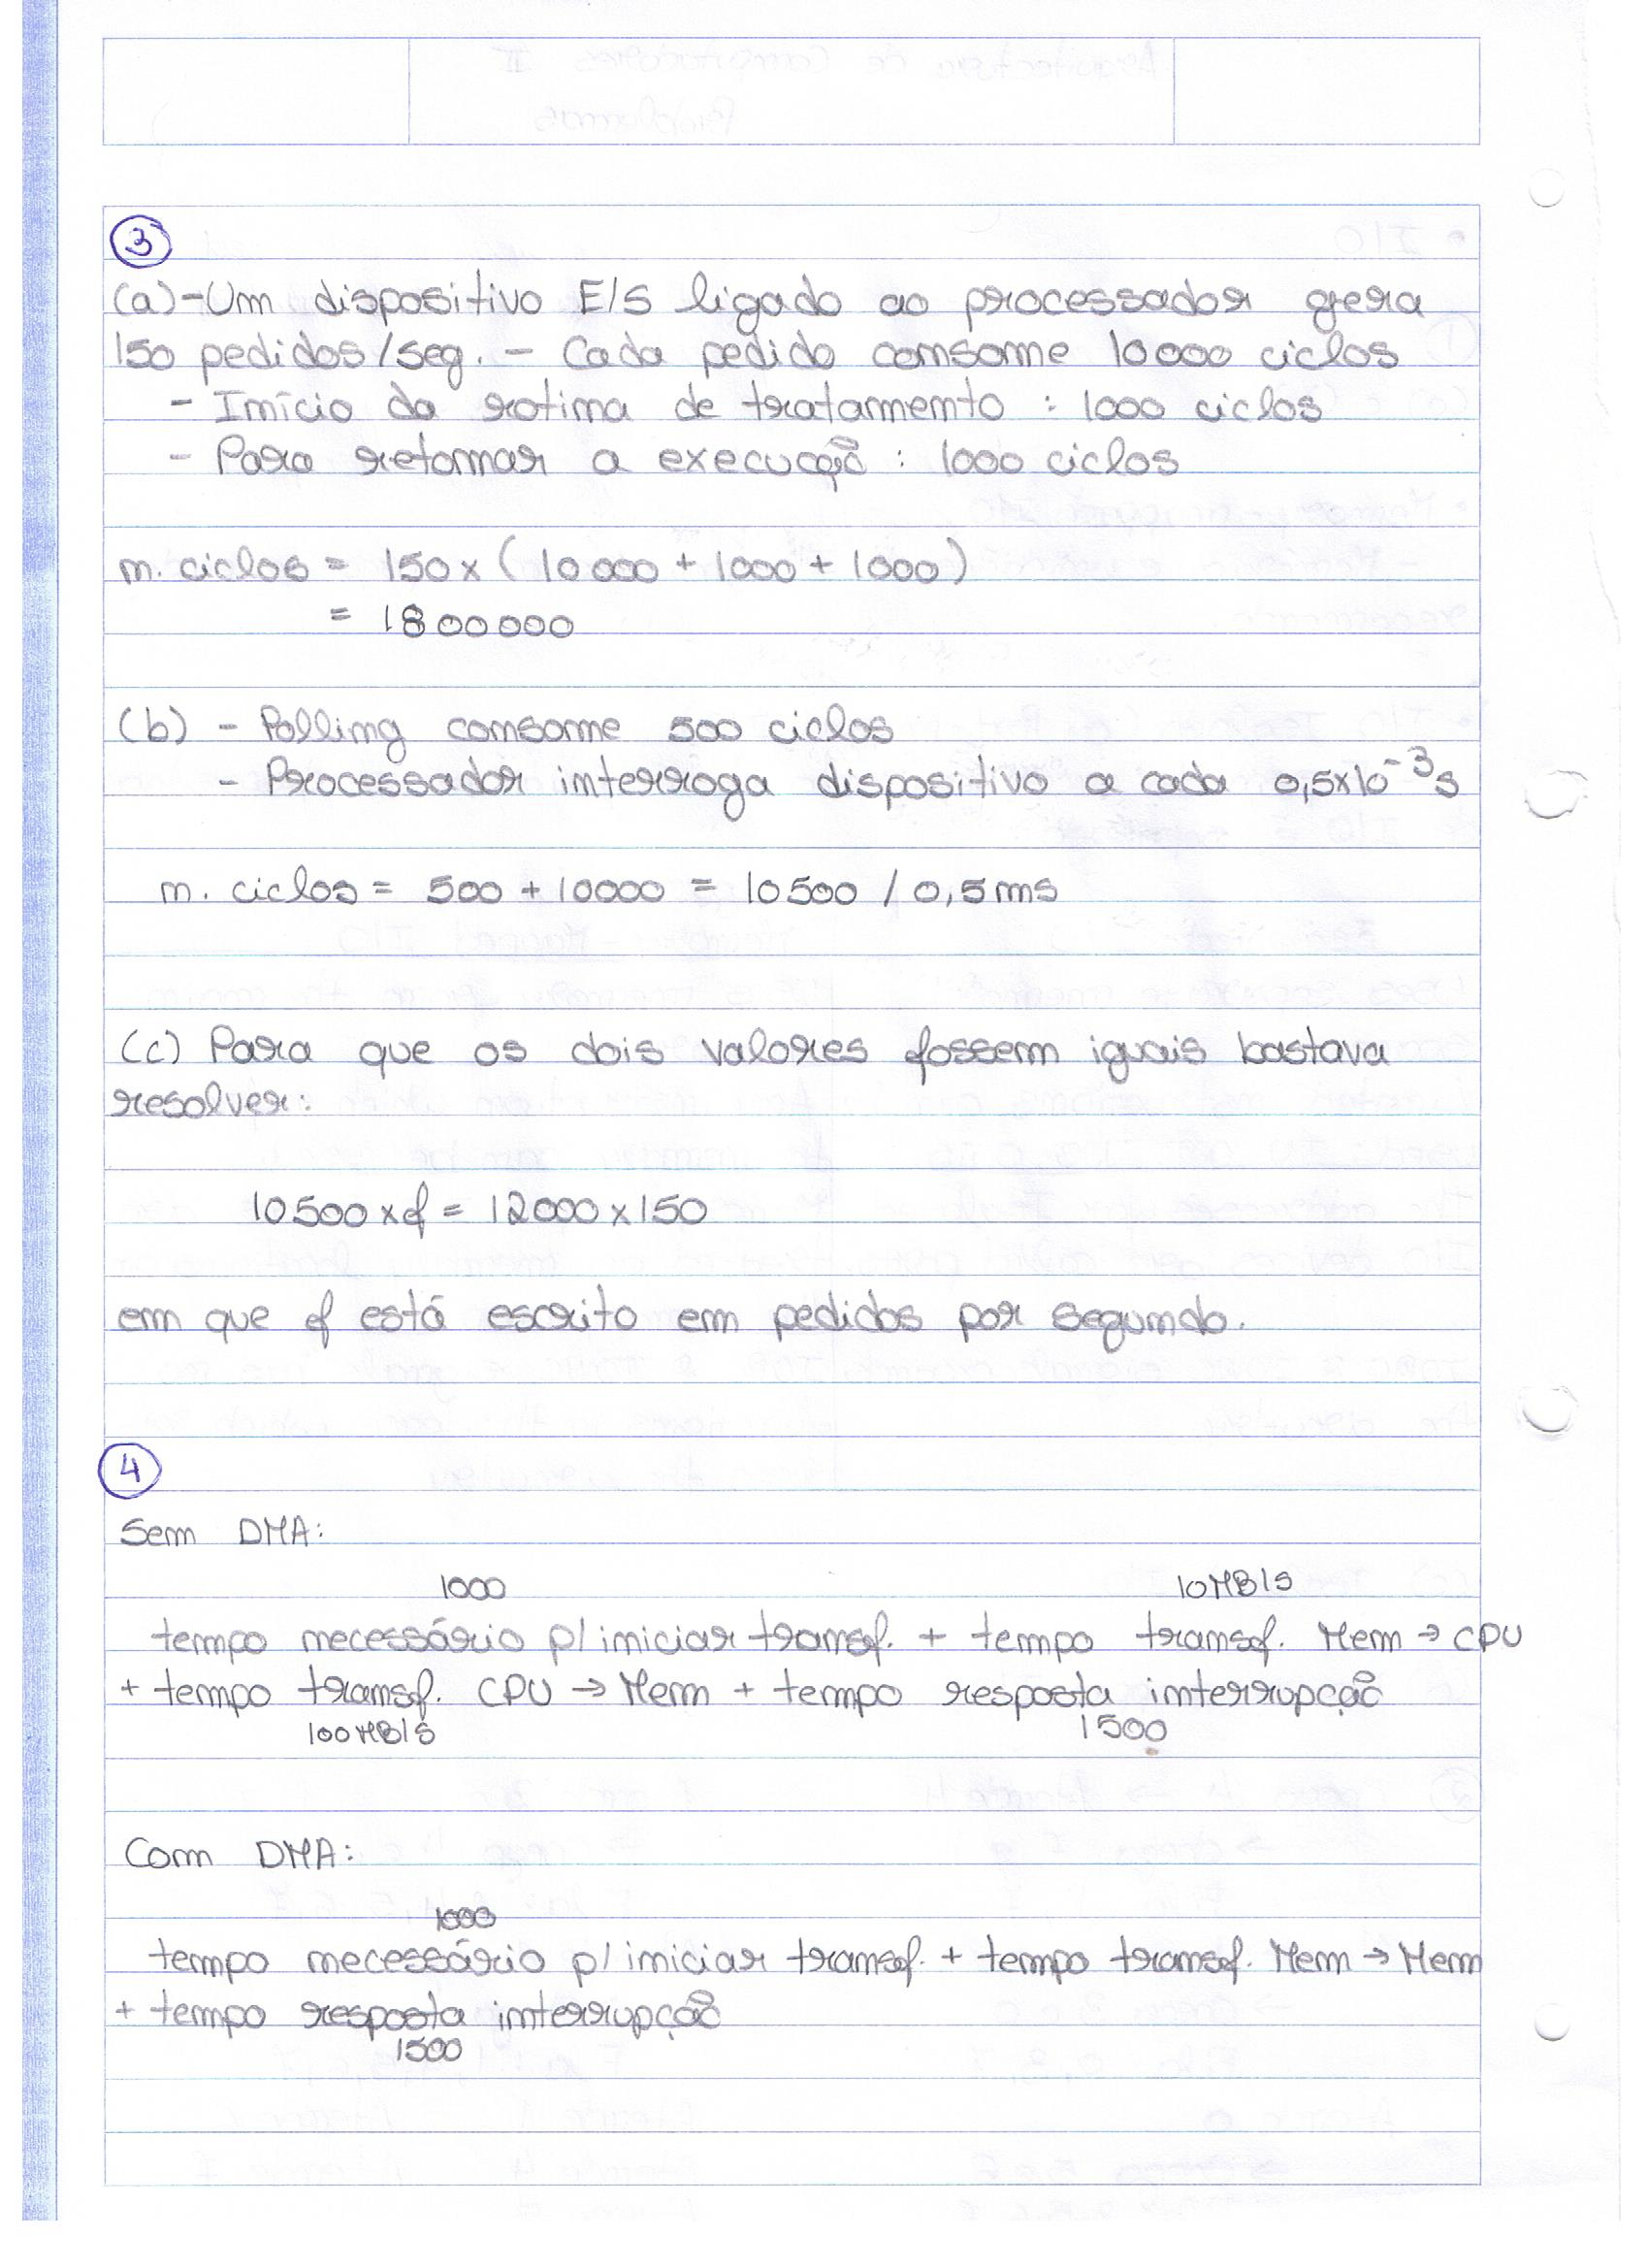 3
(a) - Um dispositivo E/S ligado ao processador gera
150 pedidos/seg. - Cada pedido consome 10000 ciclos
- Início da rotina de tratamento : 1000 ciclos
- Para retomar a execução : 1000 ciclos
n. ciclos = 150 x (10000 + 1000 + 1000)
= 1800000
(b) - Polling consome 500 ciclos
- Processador interroga dispositivo a cada 0,5x10⁻³s
n. ciclos = 500 + 10000 = 10500 / 0,5ms
(c) Para que os dois valores fossem iguais bastava
resolver:
10500 x f = 12000 x 150
em que f está escrito em pedidos por segundo.
4
Sem DMA:
1000 10MB/s
tempo necessário p/ iniciar transf. + tempo transf. Mem → CPU
+ tempo transf. CPU → Mem + tempo resposta interrupção
100MB/s 1500
Com DMA:
1000
tempo necessário p/ iniciar transf. + tempo transf. Mem → Mem
+ tempo resposta interrupção
1500